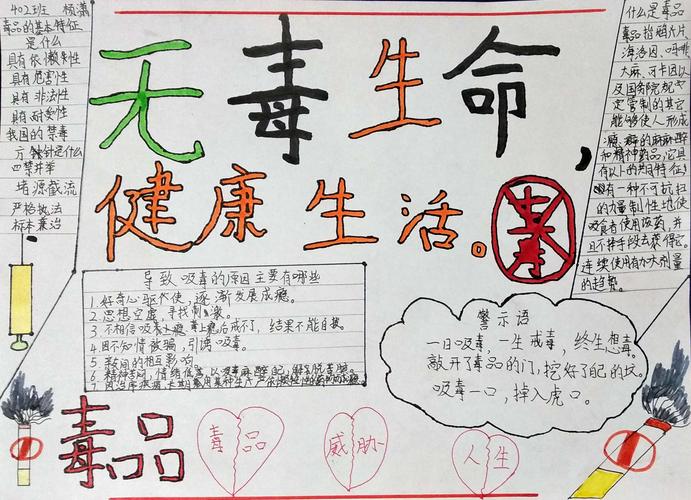 402班 杨潇
毒品的基本特征
是什么
具有依赖性
具有危害性
具有非法性
具有耐受性
我国的禁毒
方针是什么
四禁并举
堵源截流
严格执法
标本兼治
无毒生命,
健康生活。
毒
什么是毒品
毒品指鸦片
海洛因、吗啡
大麻、可卡因以
及国务院规
定管制的其它
能够使人形成
瘾癖的麻醉
和精神药品,它具
有以下的共同特征:
有一种不可抗拒
的力量制性地使
吸食者使用该药,并
且不择手段去获得它。
连续使用有加大剂量
的趋势。
导致吸毒的原因主要有哪些
1.好奇心驱使,逐渐发展成瘾。
2.思想空虚,寻找刺激。
3.不相信吸毒上瘾,毒上瘾后戒不了,结果不能自拔。
4.因不知情被骗,引诱吸毒。
5.亲朋间的相互影响
警示语
一日吸毒,一生戒毒,终生想毒。
敲开了毒品的门,挖好了自己的坑。
吸毒一口,掉入虎口。
毒品
毒品
威胁
人生